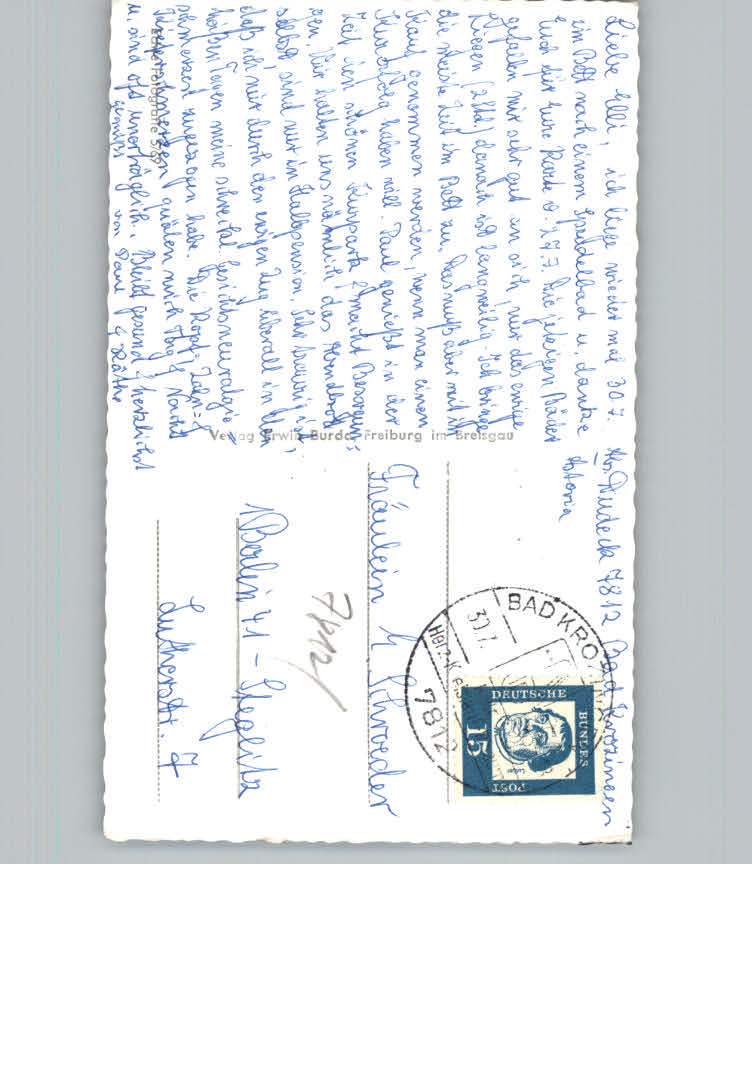 Liebe Elli, ich liege wieder mal 30.7.
im Bett nach einem Sprudelbad u. danke
Euch für Eure Karte v. 27.7. Die jetzigen Bäder
gefallen mir sehr gut an sich, nur das ewige
Liegen (2 Std) danach ist langweilig. Ich bringe
die meiste Zeit im Bett zu. Das muß aber mit in
Kauf genommen werden, wenn man einen
Kurerfolg haben will. Paul genießt in der
Zeit den schönen Kurpark & macht Besorgun=
gen. Wir halten uns nämlich das Abendbrot
selbst, sind nur in Halbpension. Sehr traurig ist,
daß ich mir durch den ewigen Zug überall in den
meine schreckl. Gesichtsneuralgie
schmerzen zugezogen habe. Die Kopf= Zahn= &
schmerzen quälen mich Tag & Nacht
u. sind oft unerträglich. Bleibt gesund & herzlichst
gegrüßt von Paul & Käthe
Echte Fotografie
Verlag Erwin Burda, Freiburg im Breisgau
Abs. Rudeck 7812 Bad Krozingen
Astoria
Fräulein
E. Schroeder
1 Berlin 41 – Steglitz
Lutherstr. 7
7812
BAD KROZ
Herz-Kreis
30.7.
7812
DEUTSCHE
BUNDES
POST
15
Luther